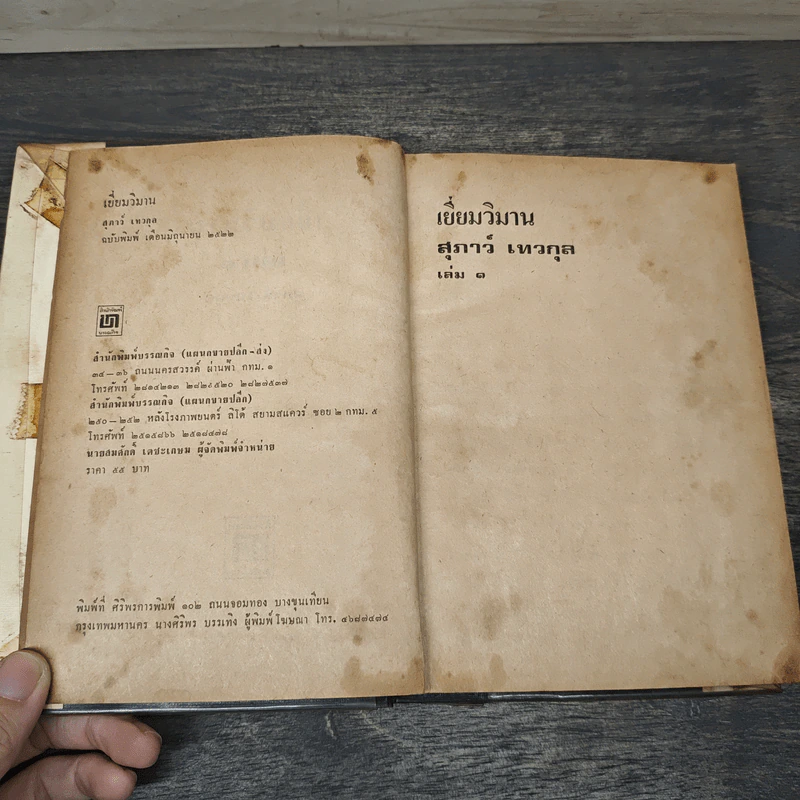 เยี่ยมวิมาน
สุภาว์ เทวกุล
ฉบับพิมพ์ เดือนมิถุนายน ๒๕๒๒
สำนักพิมพ์บรรณกิจ (แผนกขายปลีก-ส่ง)
๓๔-๓๖ ถนนนครสวรรค์ ผ่านฟ้า กทม. ๑
โทรศัพท์ ๒๘๑๔๒๑๓ ๒๘๒๙๕๒๐ ๒๘๒๗๕๓๗
สำนักพิมพ์บรรณกิจ (แผนกขายปลีก)
๒๕๐-๒๕๒ หลังโรงภาพยนตร์ ลิโด้ สยามสแควร์ ซอย ๒ กทม. ๕
โทรศัพท์ ๒๕๑๕๘๖๖ ๒๕๑๘๔๗๘
นายสมศักดิ์ เตชะเกษม ผู้จัดพิมพ์จำหน่าย
ราคา ๕๕ บาท
พิมพ์ที่ ศิริพรการพิมพ์ ๑๐๒ ถนนจอมทอง บางขุนเทียน
กรุงเทพมหานคร นางศิริพร บรรเทิง ผู้พิมพ์โฆษณา โทร. ๔๖๘๗๔๗๔
เยี่ยมวิมาน
สุภาว์ เทวกุล
เล่ม ๑